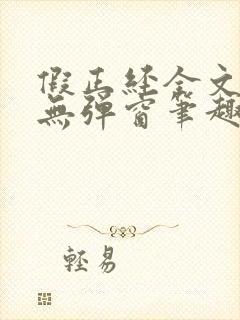 假正経全文
無彈窗筆趣
輕易